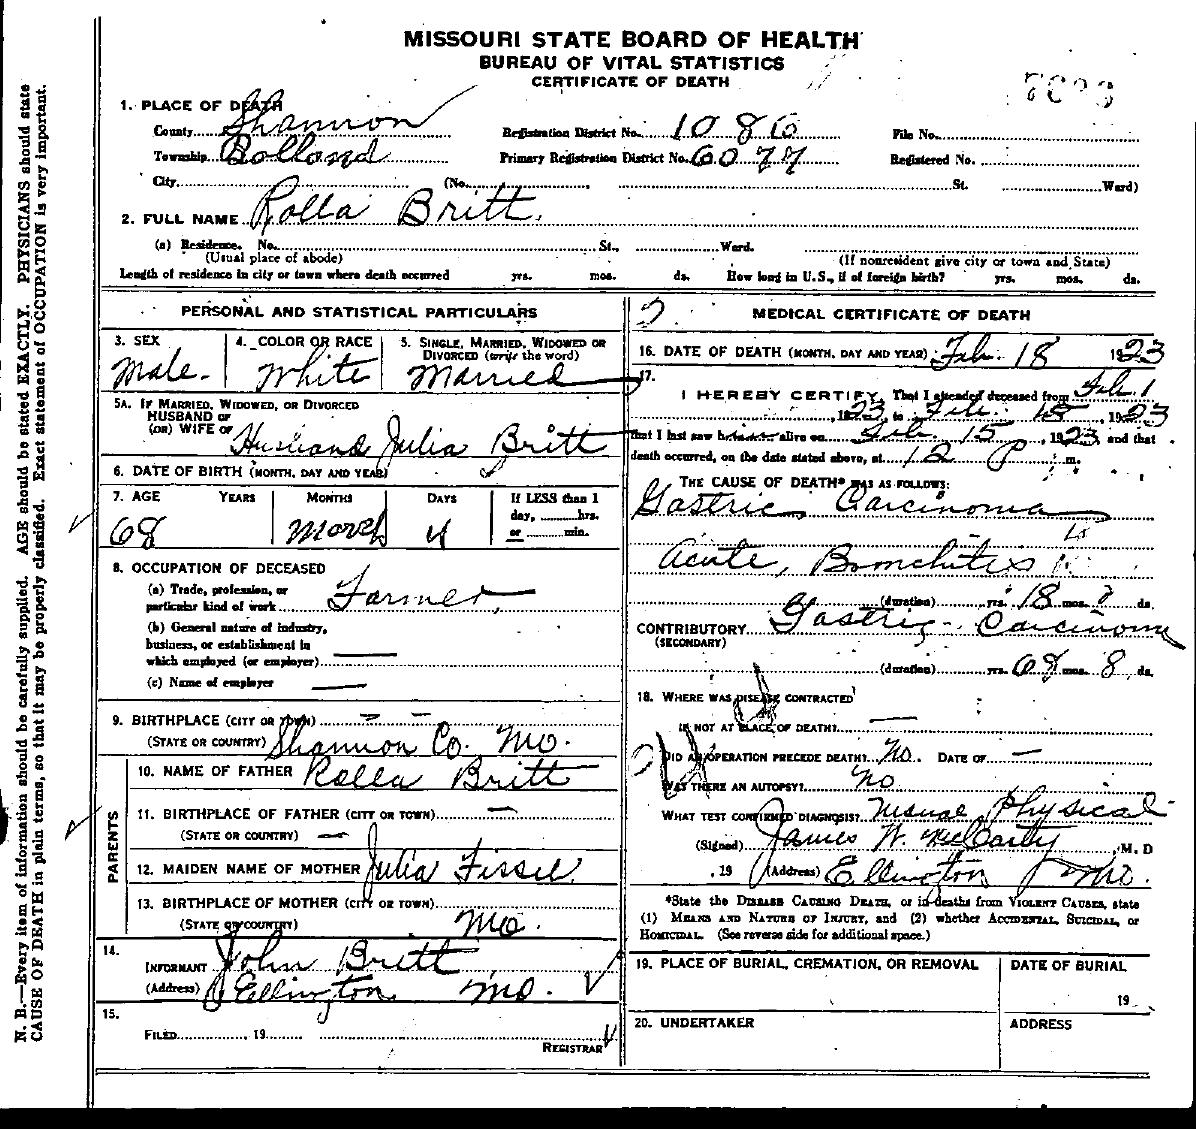 MISSOURI STATE BOARD OF HEALTH
BUREAU OF VITAL STATISTICS
CERTIFICATE OF DEATH
1. PLACE OF DEATH
County Shannon Registration District No. 1086 File No.
Township Bolland Primary Registration District No. 6077 Registered No.
City (No. St. Ward)
2. FULL NAME Rolla Britt.
(a) Residence. No. St., Ward.
(Usual place of abode) (If nonresident give city or town and State)
Length of residence in city or town where death occurred yrs. mos. ds. How long in U.S., if of foreign birth? yrs. mos. ds.
PERSONAL AND STATISTICAL PARTICULARS
3. SEX 4. COLOR OR RACE 5. SINGLE, MARRIED, WIDOWED OR
DIVORCED (write the word)
Male. White Married
5A. IF MARRIED, WIDOWED, OR DIVORCED
HUSBAND OF
(OR) WIFE OF Husband Julia Britt
6. DATE OF BIRTH (MONTH, DAY AND YEAR)
7. AGE YEARS MONTHS DAYS If LESS than 1
day, hrs.
or min.
68 March 4
8. OCCUPATION OF DECEASED
(a) Trade, profession, or
particular kind of work Farmer,
(b) General nature of industry,
business, or establishment in
which employed (or employer)
(c) Name of employer
9. BIRTHPLACE (CITY OR TOWN)
(STATE OR COUNTRY) Shannon Co. Mo.
PARENTS
10. NAME OF FATHER Rolla Britt
11. BIRTHPLACE OF FATHER (CITY OR TOWN)
(STATE OR COUNTRY)
12. MAIDEN NAME OF MOTHER Julia Fissel
13. BIRTHPLACE OF MOTHER (CITY OR TOWN)
(STATE OR COUNTRY) Mo.
14.
INFORMANT John Britt
(Address) Ellington, Mo.
15.
FILED 19
REGISTRAR
MEDICAL CERTIFICATE OF DEATH
16. DATE OF DEATH (MONTH, DAY AND YEAR) Feb. 18 1923
17.
I HEREBY CERTIFY, That I attended deceased from Feb. 1
, 1923 to Feb. 15, 1923
that I last saw alive on Feb. 15, 1923, and that
death occurred, on the date stated above, at 12 P m.
THE CAUSE OF DEATH* WAS AS FOLLOWS:
Gastric Carcinoma
Acute, Bronchitis
(duration) yrs. 18 mos. ds.
CONTRIBUTORY Gastric - Carcinoma
(SECONDARY)
(duration) yrs. 68 mos. 8 ds.
18. WHERE WAS DISEASE CONTRACTED
IF NOT AT PLACE OF DEATH?
DID AN OPERATION PRECEDE DEATH? No. DATE OF
WAS THERE AN AUTOPSY? No
WHAT TEST CONFIRMED DIAGNOSIS? Physical
(Signed) James W. McCarty, M. D
, 19 (Address) Ellington Mo.
*State the DISEASE CAUSING DEATH, or in deaths from VIOLENT CAUSES, state
(1) MEANS AND NATURE OF INJURY, and (2) whether ACCIDENTAL, SUICIDAL, or
HOMICIDAL. (See reverse side for additional space.)
19. PLACE OF BURIAL, CREMATION, OR REMOVAL DATE OF BURIAL
19
20. UNDERTAKER ADDRESS
N. B.—Every item of information should be carefully supplied. AGE should be stated EXACTLY. PHYSICIANS should state
CAUSE OF DEATH in plain terms, so that it may be properly classified. Exact statement of OCCUPATION is very important.